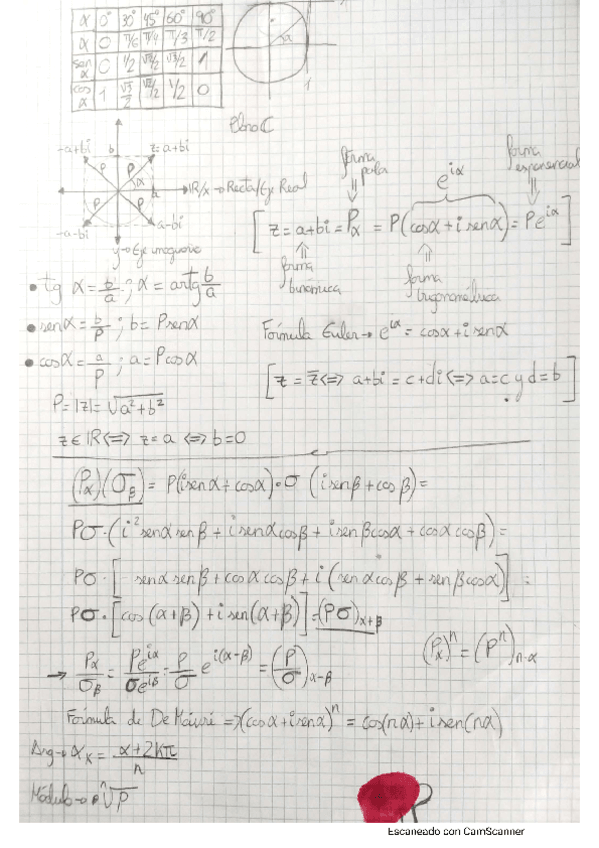 α 0° 30° 45° 60° 90°
α 0 π/6 π/4 π/3 π/2
sen α 0 1/2 √2/2 √3/2 1
cos α 1 √3/2 √2/2 1/2 0
α
1
Plano C
-a+bi b z=a+bi
P P α a IR/x→Recta/Eje Real
P P
-a-bi a-bi
y→Eje imaginario
forma polar
e^iα
forma exponencial
[z=a+bi = P_α = P(cosα+i senα) = P e^iα]
forma binomica
forma trigonométrica
• tg α = b/a ; α = artg b/a
• senα = b/P ; b = P senα
• cosα = a/P ; a = P cosα
Fórmula Euler → e^iα = cosα + i senα
[z = z̄ <=> a+bi = c+di <=> a=c y d=b]
P = |z| = √a²+b²
z∈IR <=> z=a <=> b=0
(P_α)(σ_β) = P(i senα + cosα)·σ (i senβ + cosβ) =
Pσ·(i² senα senβ + i senα cosβ + i senβ cosα + cosα cosβ) =
Pσ·[- senα senβ + cosα cosβ + i(senα cosβ + senβ cosα)] =
Pσ·[cos(α+β) + i sen(α+β)] = (Pσ)_α+β
→ P_α/σ_β = Pe^iα/σe^iβ = P/σ e^i(α-β) = (P/σ)_α-β
(P_α)^n = (P^n)_n·α
Fórmula de De => (cosα + i senα)^n = cos(nα) + i sen(nα)
Arg → α_K = α+2Kπ/n
Módulo → ⁿ√P
Escaneado con CamScanner